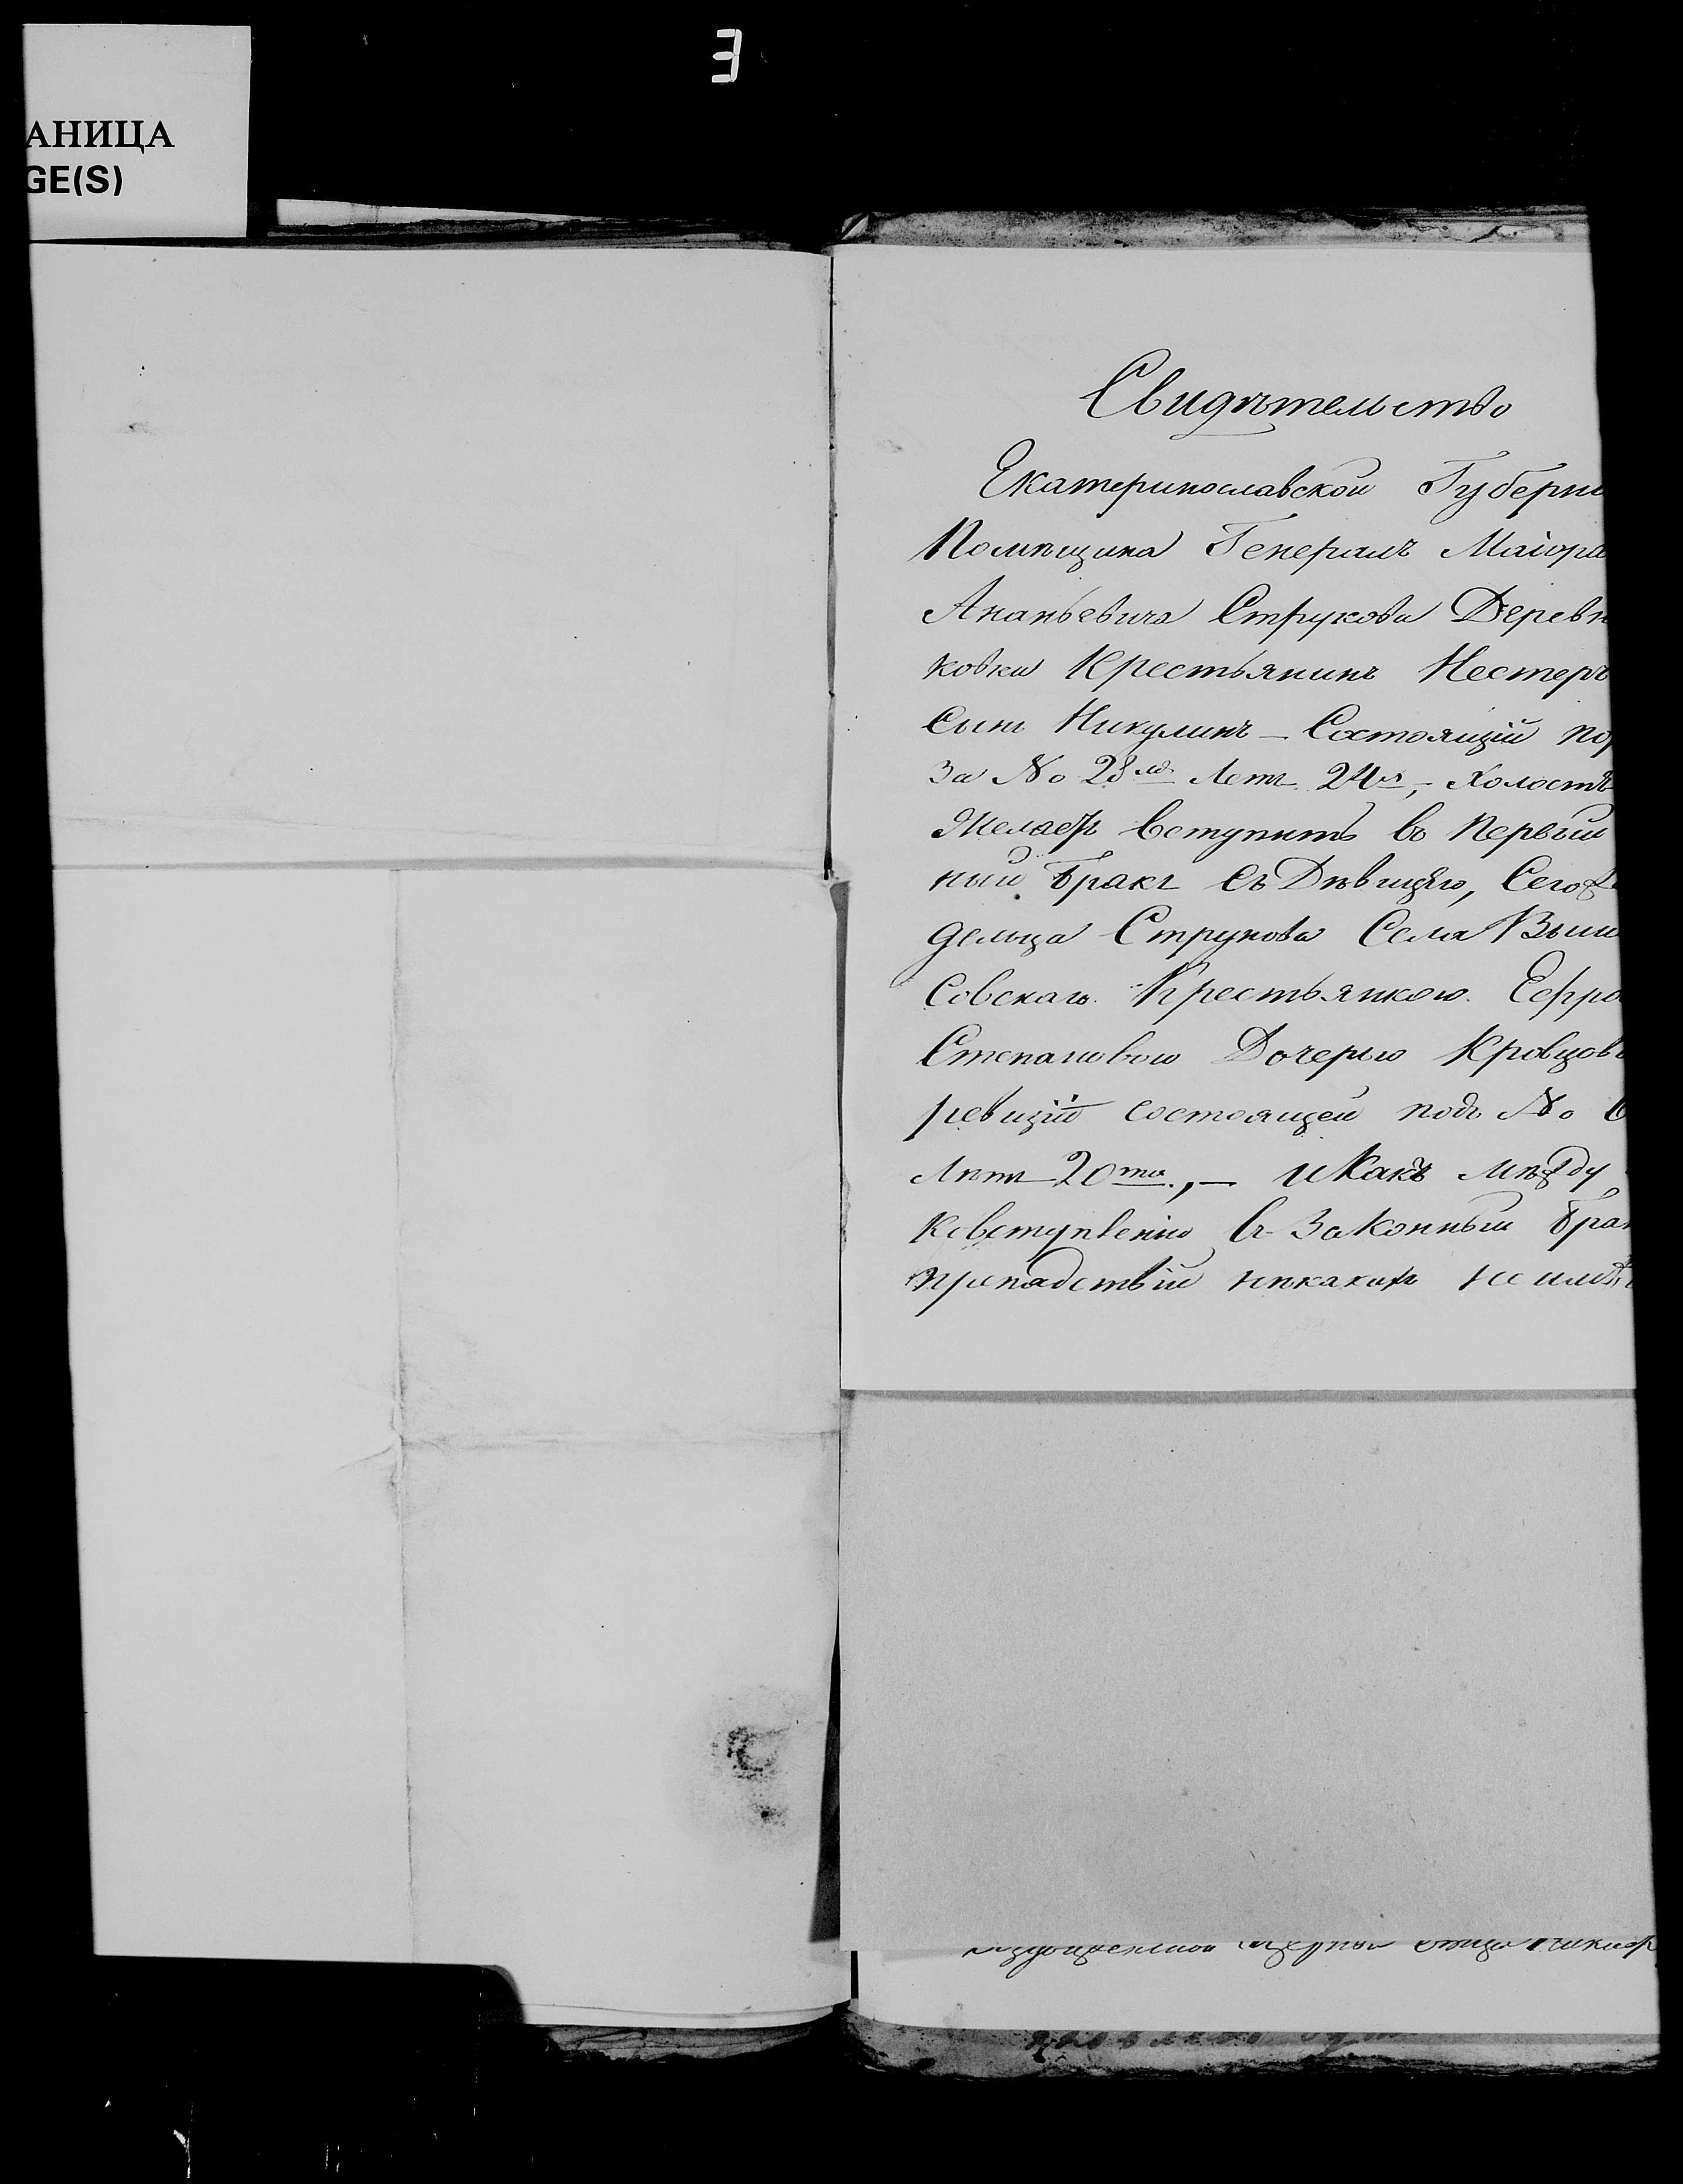 3
АНИЦА
GE(S)
Свидѣтельство
Екатеринославской Губерни
Помѣщика Генералъ Маіора
Ананьевича Струкова Деревн
ковки Крестьянинъ Нестеръ
Сынъ Никулинъ – Состоящій по
за No 28мъ Летъ 24., – Холостъ
Желаетъ вступить во Первый
ный Бракъ Съ Дѣвицѣю, Сего
дельца Струкова Села
Совскаго Крестьянкою. Ефро
Степановою Дочерью Кравцов
ревизіи состоящей подъ No
Лѣтъ 20ти., – И Какъ Между
Ковступленію Въ Законный Бра
препядствій никакихъ не имѣ